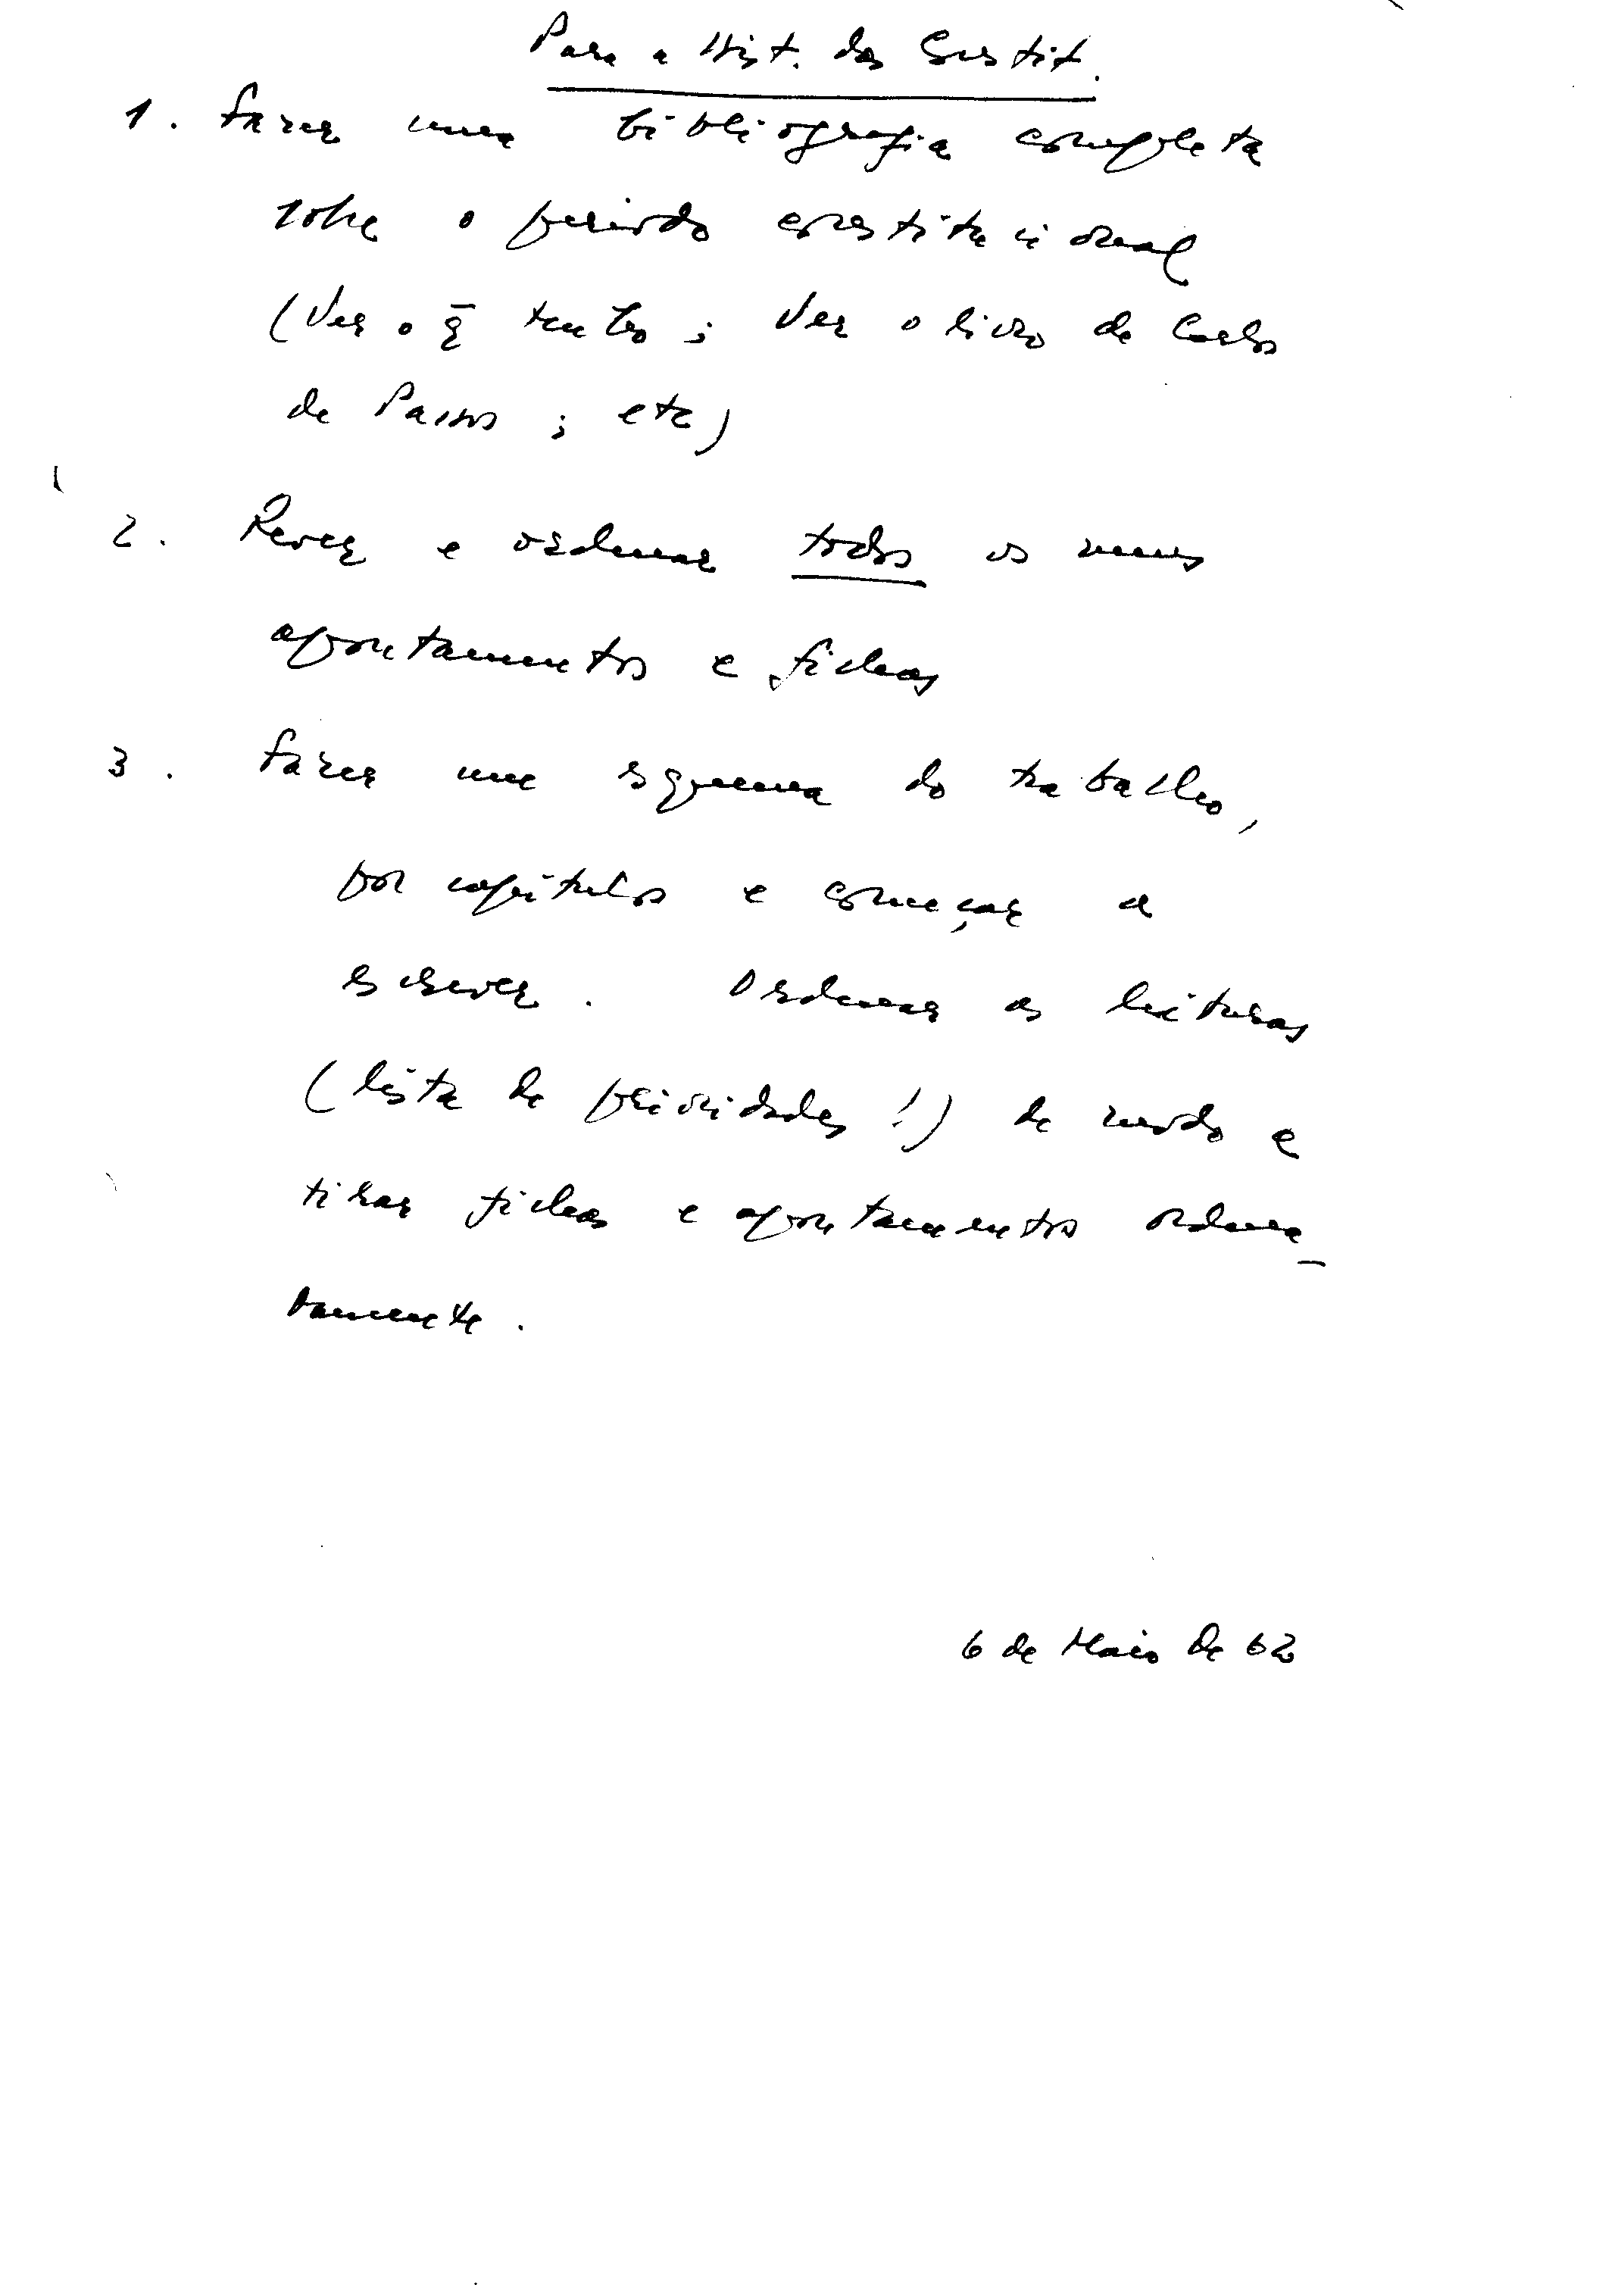 Para a Hist. das Instit.
1. Fazer uma bibliografia completa
sobre o período constitucional
(Ver o q̄ tenho; Ver o livro de Carlos
de Passos; etc)
2. Rever e ordenar todos os meus
apontamentos e fichas
3. Fazer um esquema do trabalho,
por capítulos e começar a
escrever. Ordenar as leituras
(lista de prioridades!) de modo a
tirar fichas e apontamentos ordena-
damente.
6 de Maio de 62